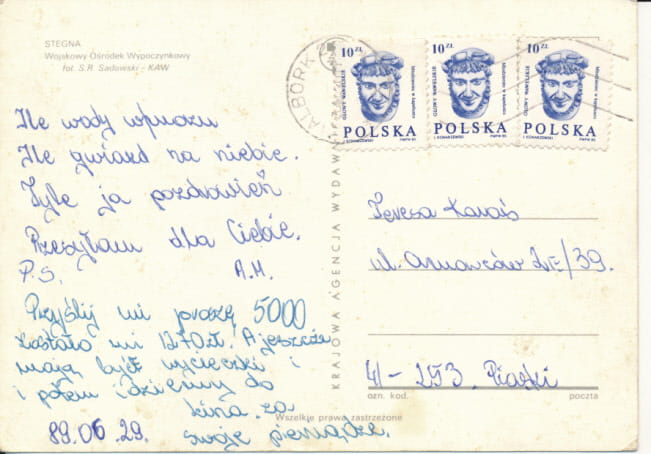 STEGNA
Wojskowy Ośrodek Wypoczynkowy
fot. S.R. Sadowski - KAW
Ile wody w morzu
Ile gwiazd na niebie.
Tyle ja pozdrowień
Przesyłam dla Ciebie.
P.S. A.M.
Przyślij mi proszę 5000
zostało mi 1270zł. A jeszcze
mają być wycieczki i
potem idziemy do
kina za
swoje pieniądze.
89.06.29.
Wszelkie prawa zastrzeżone
KRAJOWA AGENCJA WYDAW
MALBORK
10 ZŁ
GŁOWY WAWELSKIE
POLSKA
10 ZŁ
GŁOWY WAWELSKIE
POLSKA
10 ZŁ
GŁOWY WAWELSKIE
POLSKA
Teresa
ul.
41-253
ozn. kod. poczta